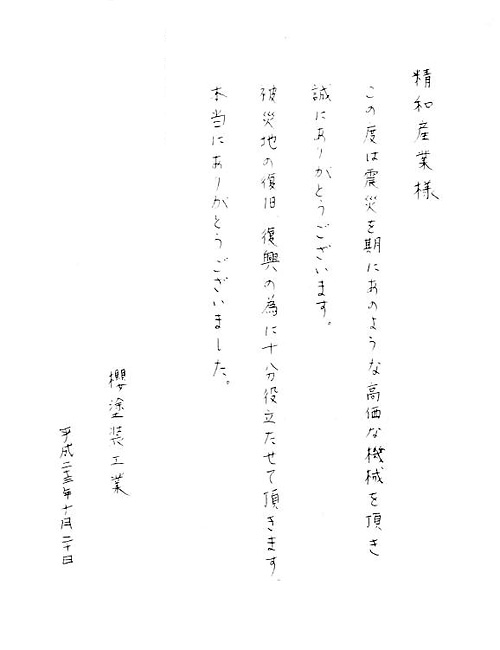 精和産業様
この度は震災を期にあのような高価な機械を頂き
誠にありがとうございます。
被災地の復旧、復興の為に十分役立たせて頂きます
本当にありがとうございました。
櫻塗装工業
平成二十三年十月二十日